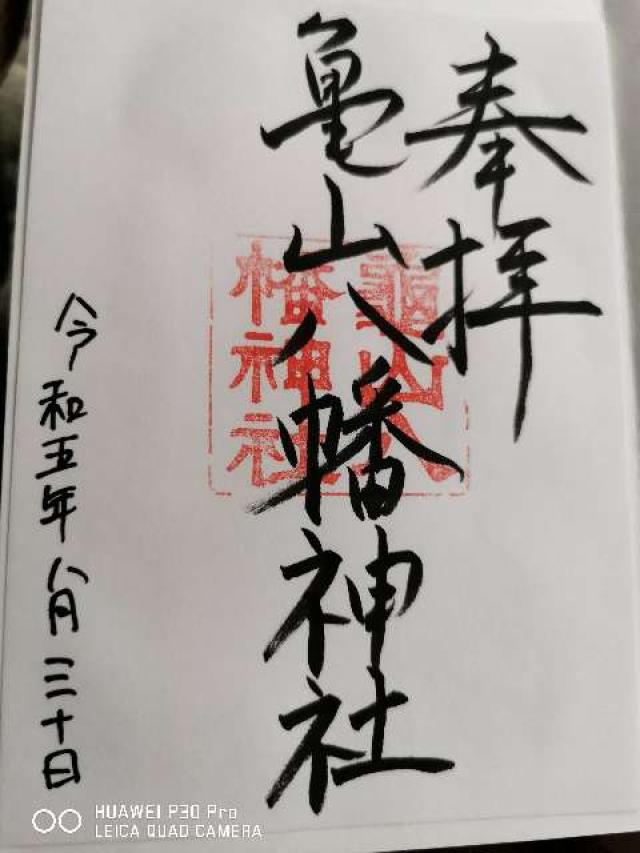 奉拝
亀山八幡神社
龜山八
幡神社
令和五年八月三十日
HUAWEI P30 Pro
LEICA QUAD CAMERA